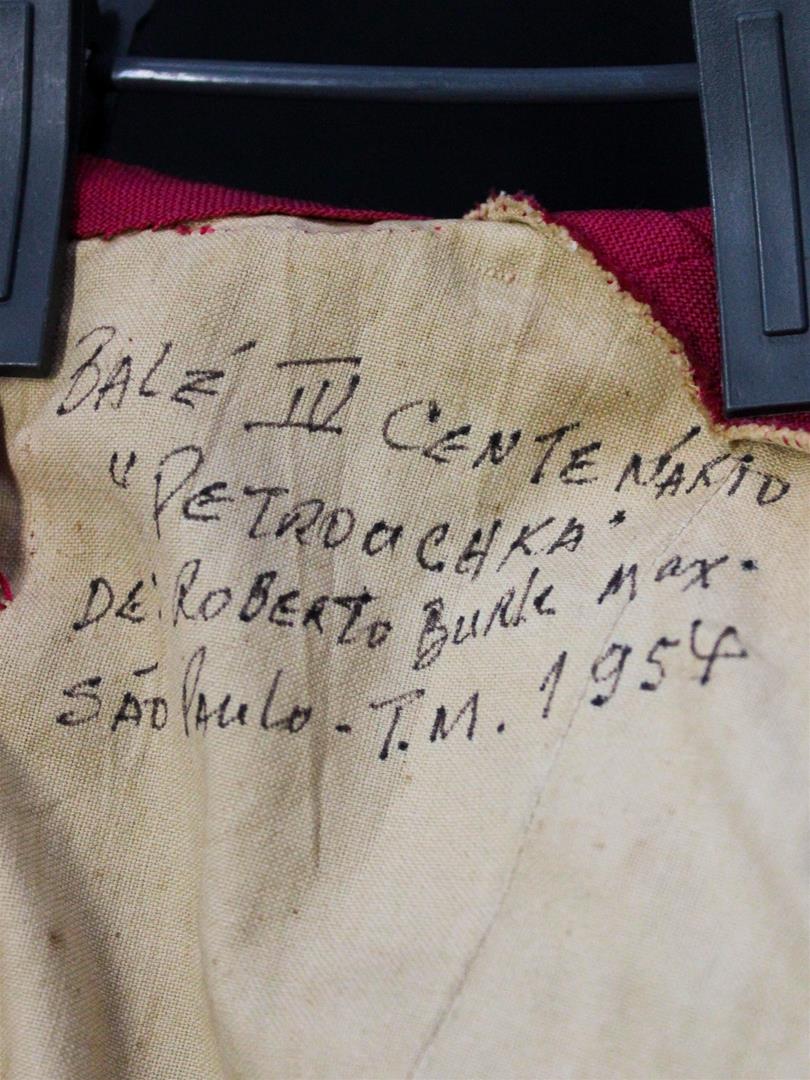 BALÉ IV CENTENÁRIO
"PETROUCHKA"
DE ROBERTO BURLE MAX.
SÃO PAULO - T.M. 1954